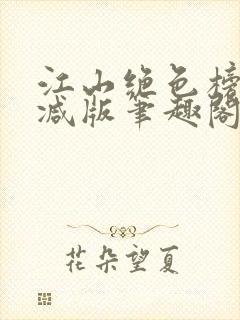 江山绝色榜
减版笔趣阁
花朵望夏